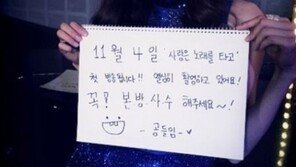 11월 4일 '사랑은 노래를 타고'
첫 방송됩니다!! 열심히 촬영하고 있어요!
꼭! 본방사수 해주세요~!
- 공들임 -